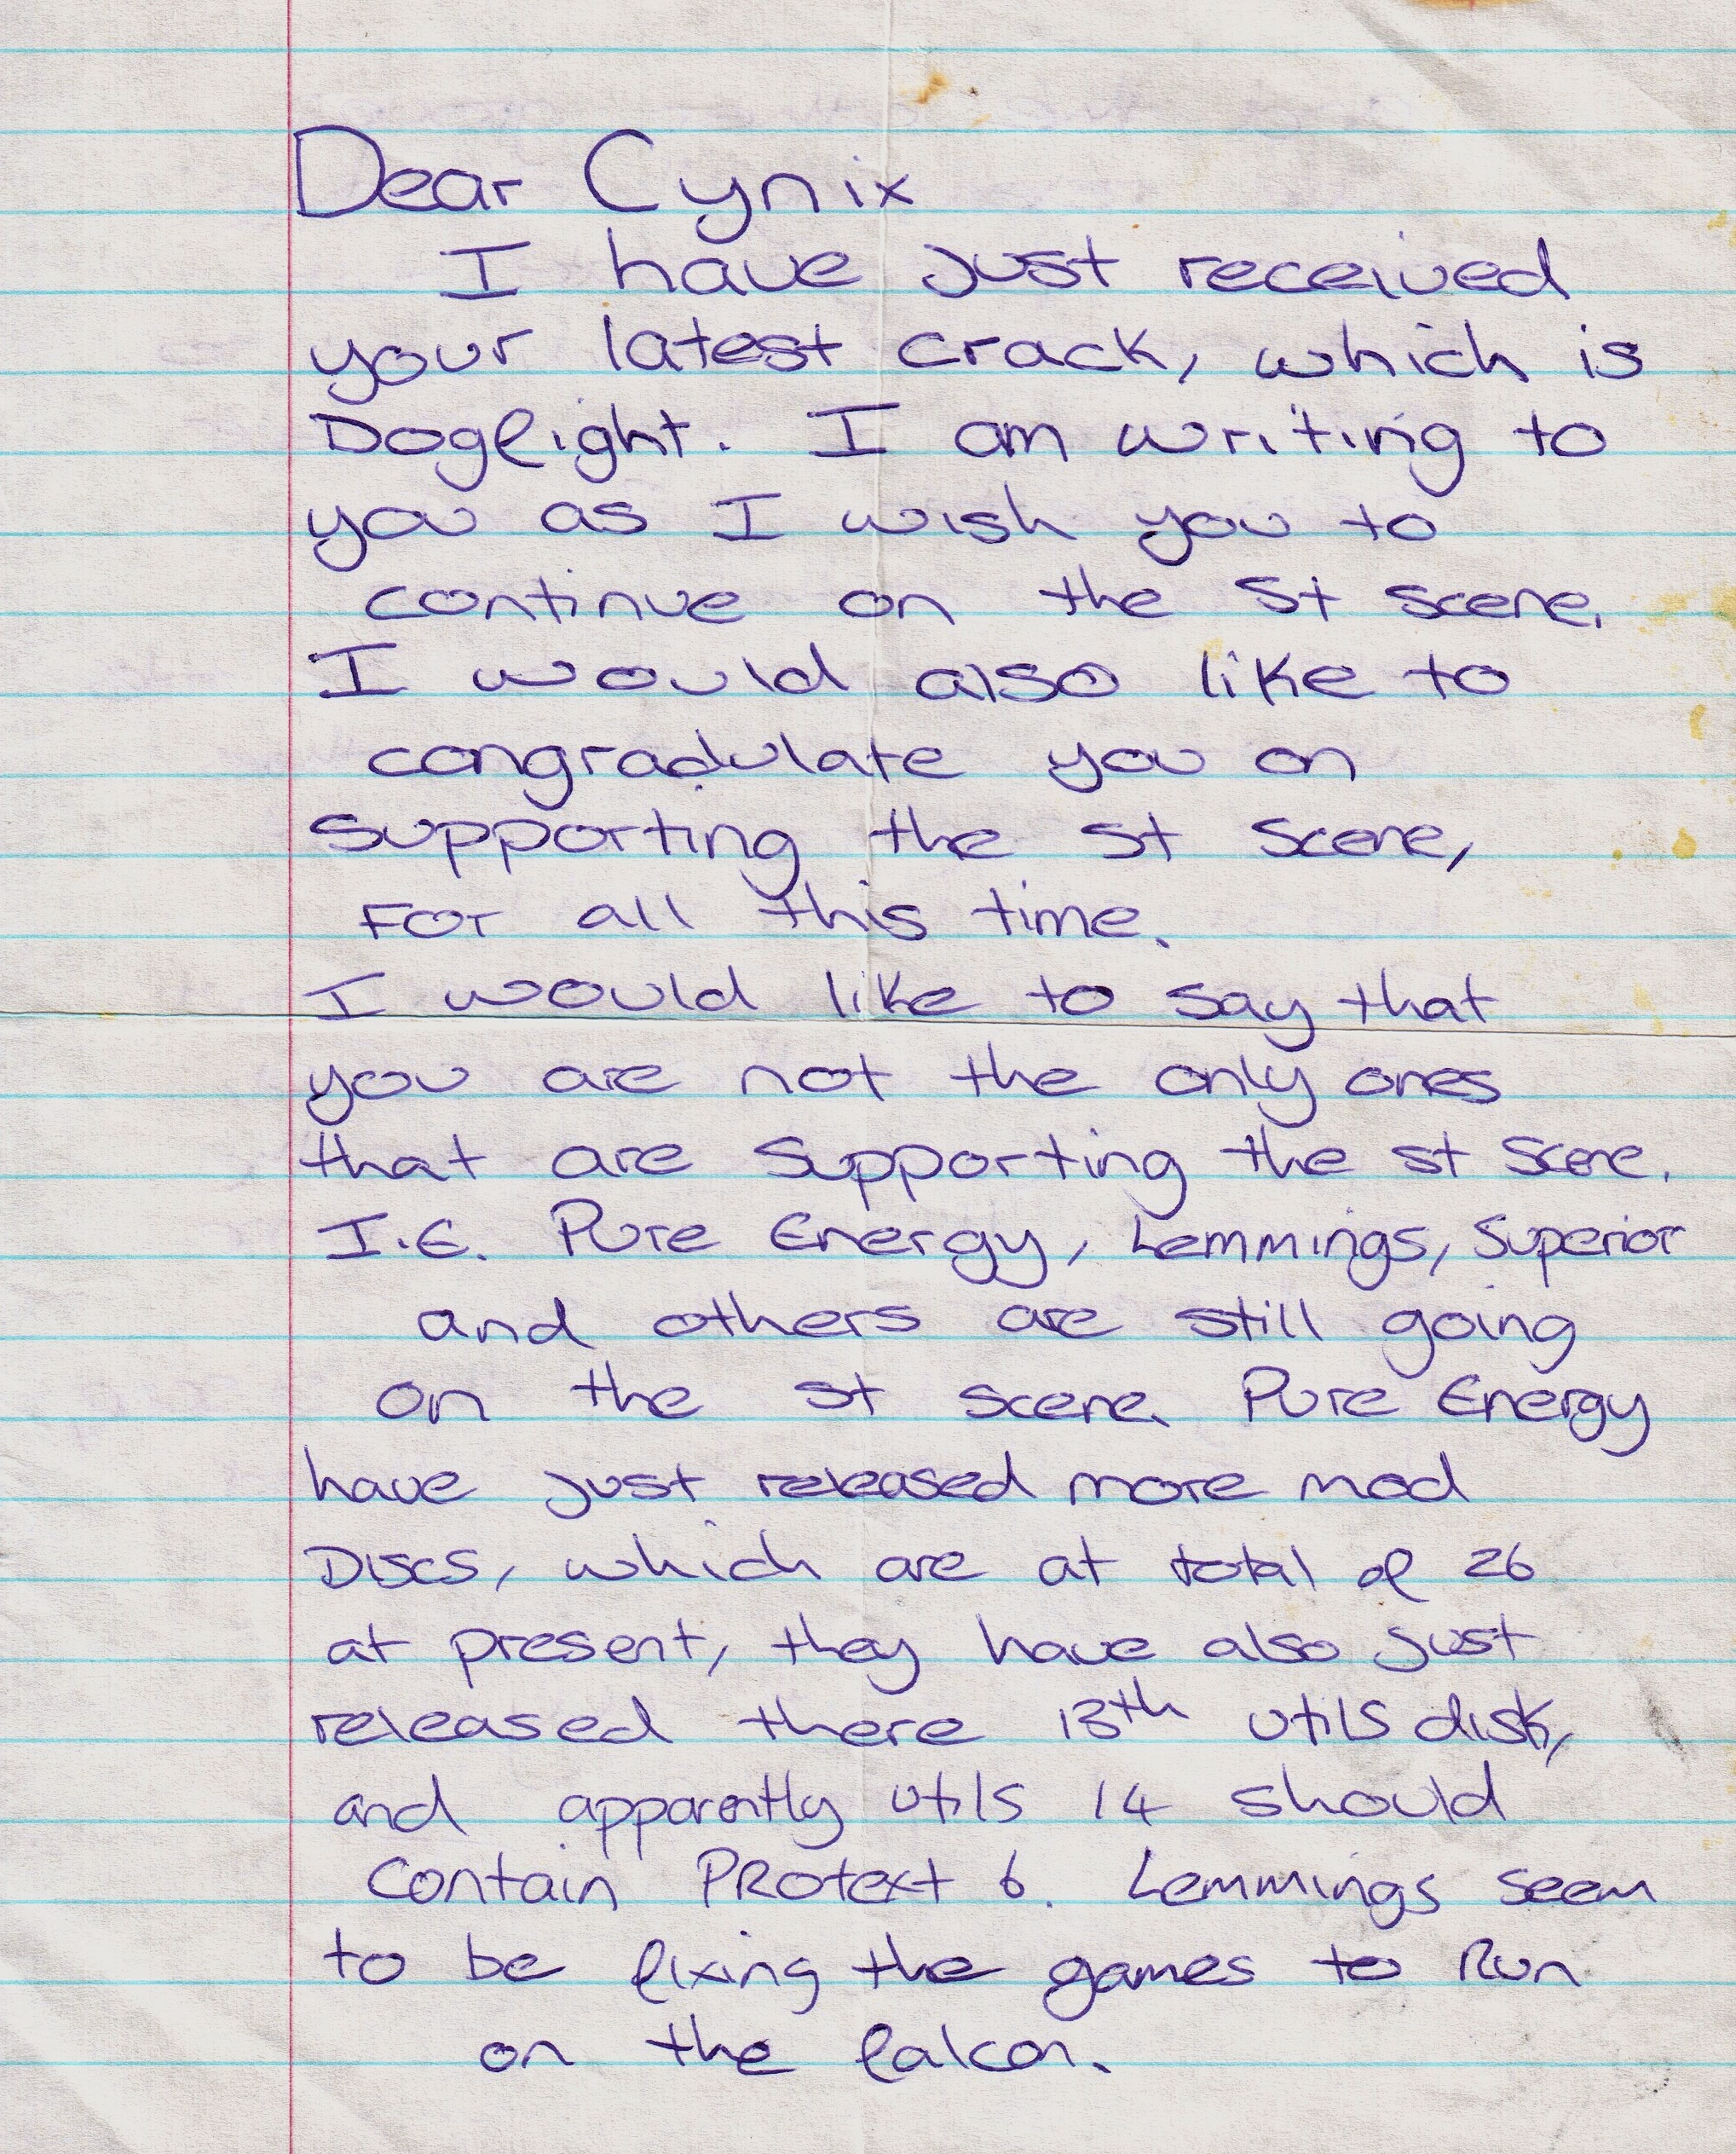 Dear Cynix
I have just received
your latest crack, which is
Dogfight. I am writing to
you as I wish you to
continue on the St scene.
I would also like to
congradulate you on
supporting the st scene,
For all this time.
I would like to say that
you are not the only ones
that are supporting the st scene.
I.E. Pure Energy, Lemmings, Superior
and others are still going
on the st scene. Pure Energy
have just released more mod
Discs, which are at total of 26
at present, they have also just
released there 13th utils disk,
and apparently utils 14 should
contain PROtext 6. Lemmings seem
to be fixing the games to Run
on the falcon.